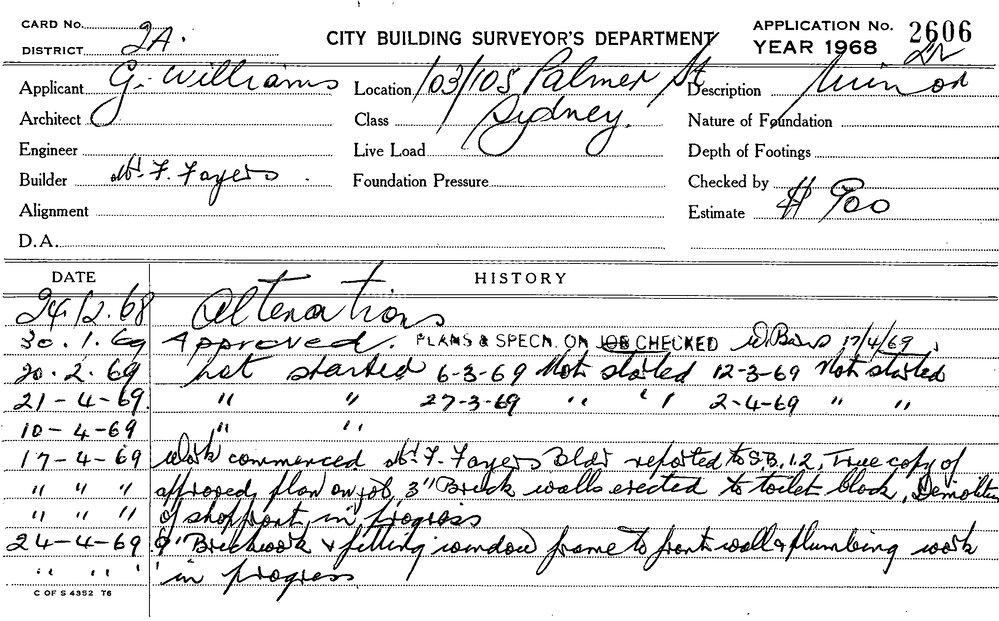 CARD No.
DISTRICT 2A.
CITY BUILDING SURVEYOR'S DEPARTMENT
APPLICATION No. 2606
YEAR 1968
Applicant G. Williams
Location 103/105 Palmer St
Description Minor
Architect
Class Sydney.
Nature of Foundation
Engineer
Live Load
Depth of Footings
Builder W. F. Fayers .
Foundation Pressure
Checked by
Alignment
Estimate $ 900
D.A.
DATE HISTORY
24.12.68 Alterations
30.1.69 Approved. PLANS & SPECN. ON JOB CHECKED 17/4/69
20.2.69 Not started 6-3-69 Not started 12-3-69 Not started
21-4-69. " " 27-3-69 " " 2-4-69 " "
10-4-69 " "
17-4-69 Work commenced W. F. Fayers Bldr reported to S.B. 12, True copy of
" " " approved plan on job, 3" Brick walls erected to toilet block, Demolition
" " " of shopfront in progress
24-4-69 9" Brickwork & fitting window frame to front wall & plumbing work
" " " in progress
C OF S 4352 T6